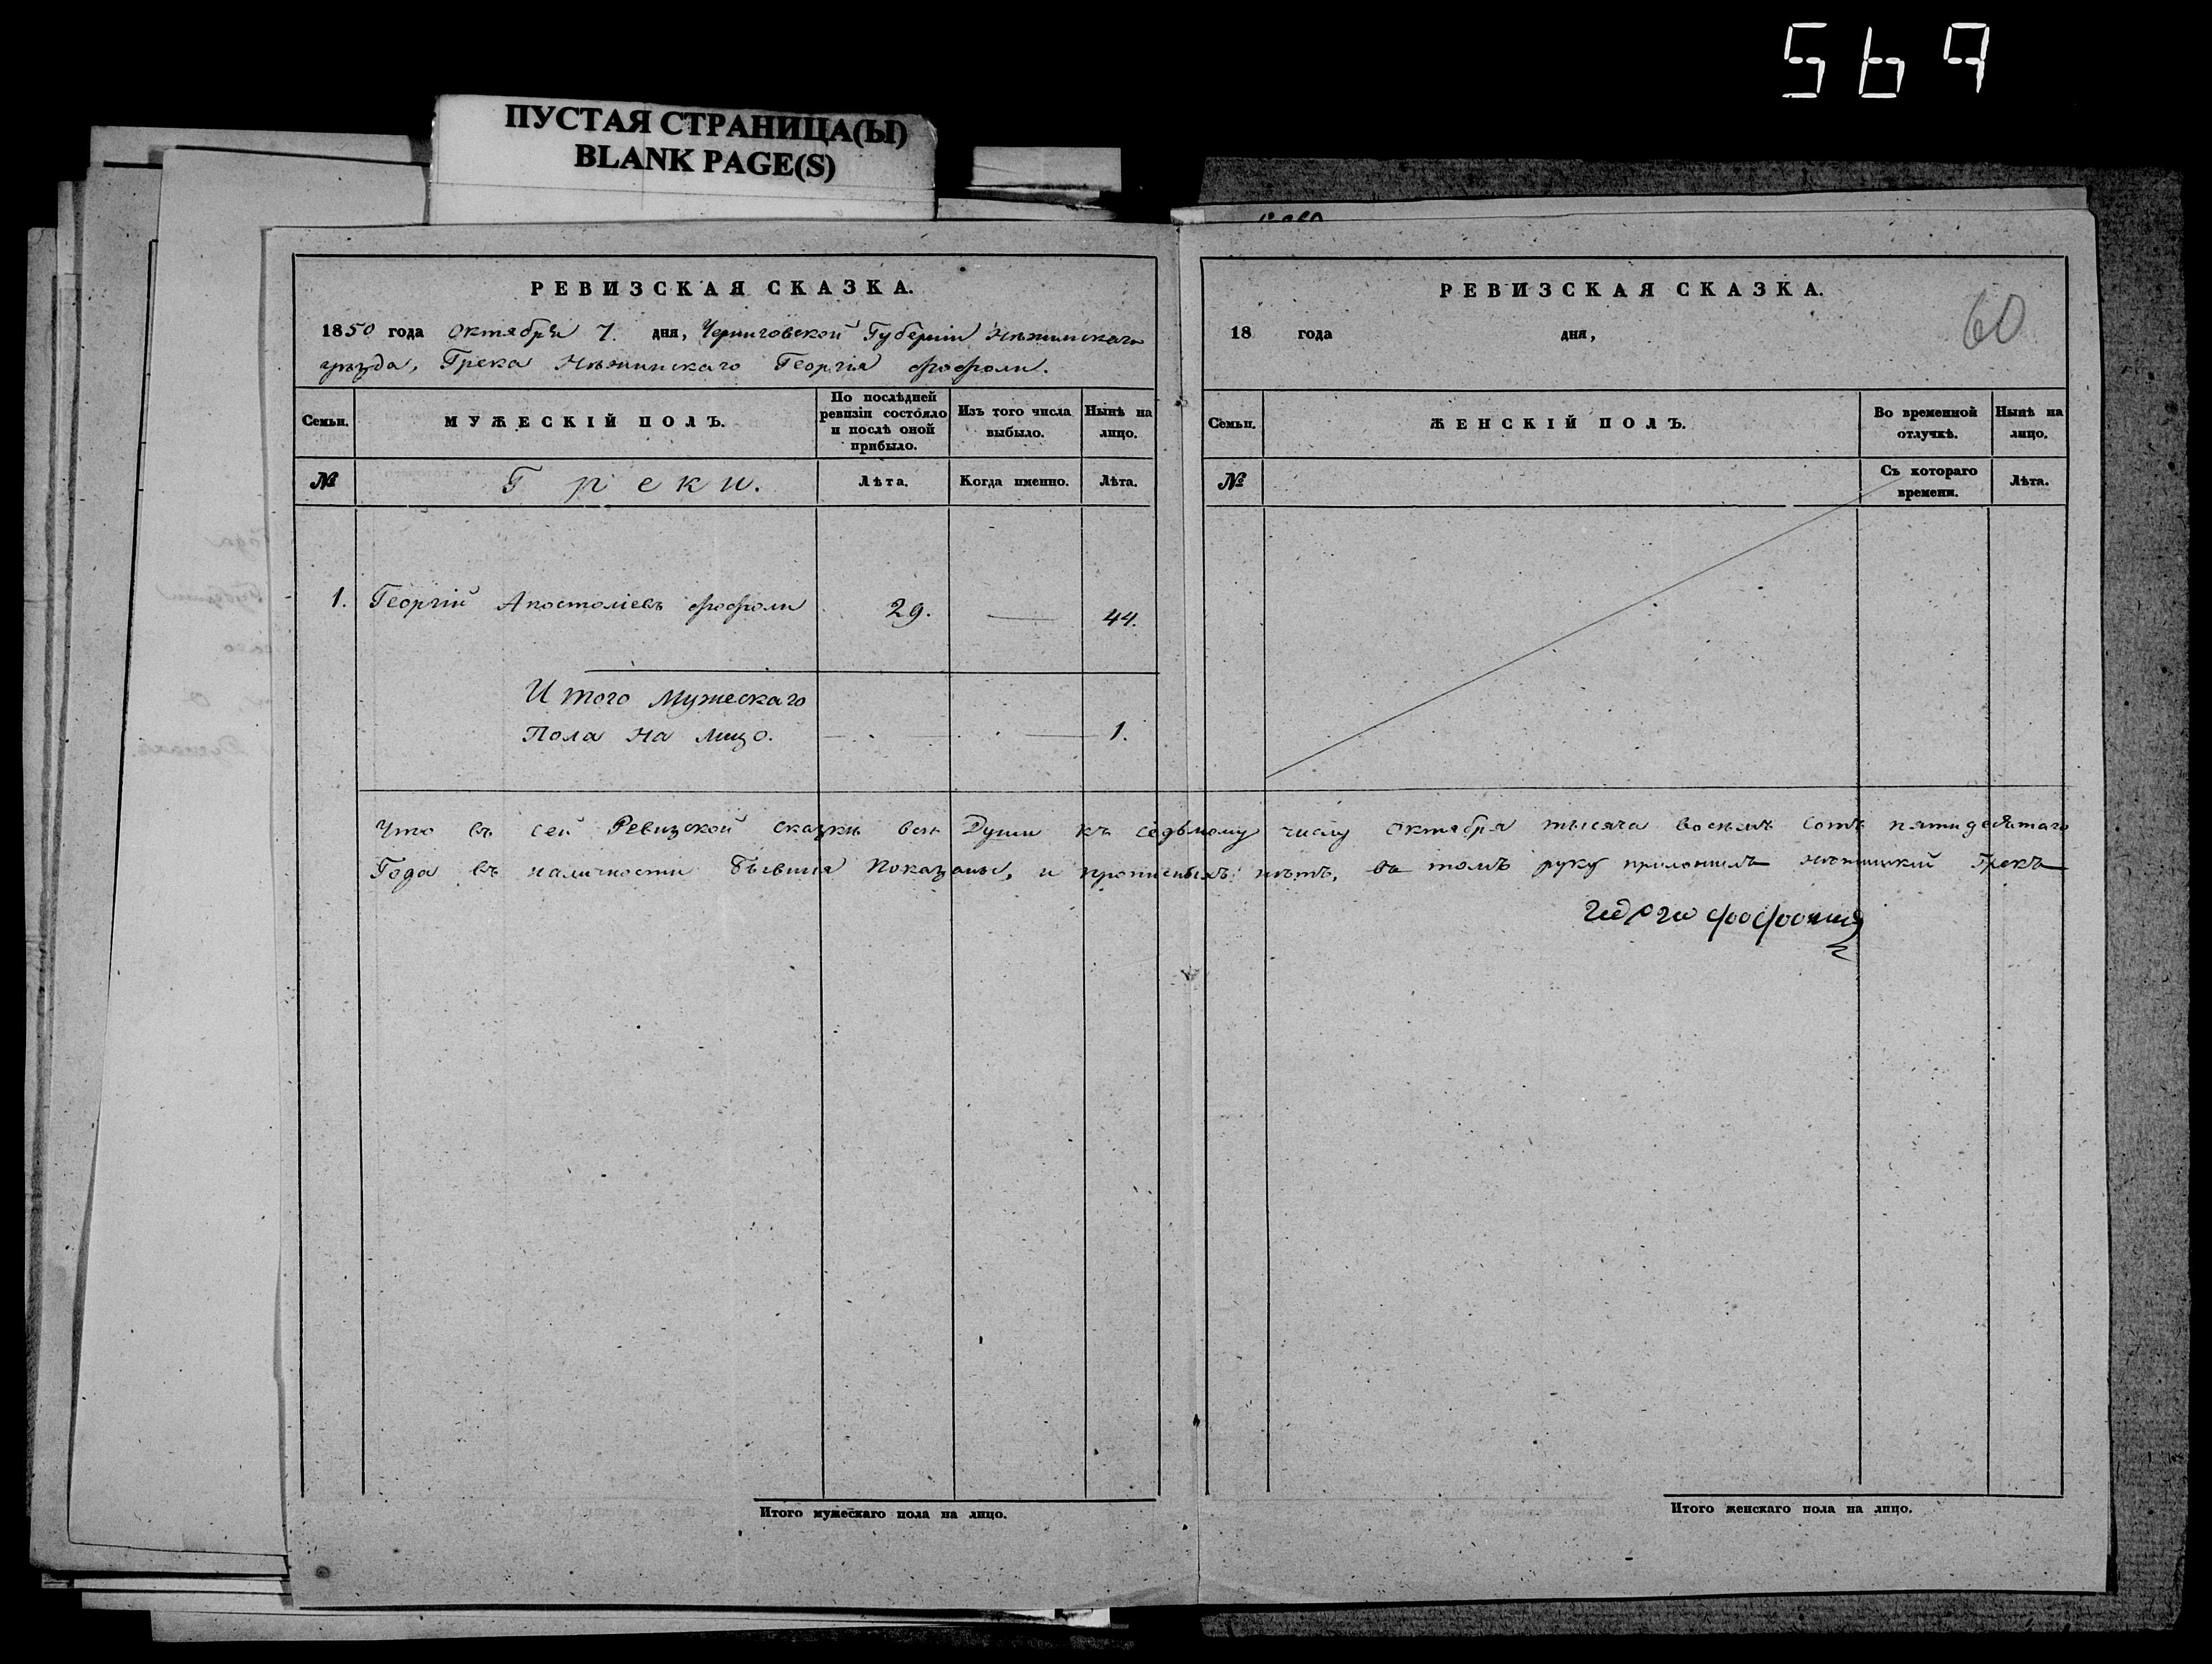 569
ПУСТАЯ СТРАНИЦА(Ы)
BLANK PAGE(S)
РЕВИЗСКАЯ СКАЗКА.
1850 года Октября 7. дня, Черниговской Губерніи Нѣжинскаго
уѣзда, Грека Нѣжинскаго Георгія Фофоли.
Семьи.
МУЖЕСКІЙ ПОЛЪ.
По послѣдней
ревизіи состояло
и послѣ оной
прибыло.
Изъ того числа
выбыло.
Нынѣ на
лицо.
№
Греки.
Лѣта.
Когда именно.
Лѣта.
1. Георгій Апостоліевъ Фофоли 29. — 44.
Итого Мужескаго
Пола на лицо. — 1.
РЕВИЗСКАЯ СКАЗКА.
60
18 года дня,
Семьи.
ЖЕНСКІЙ ПОЛЪ.
Во временной
отлучкѣ.
Нынѣ на
лицо.
№
Съ котораго
времени.
Лѣта.
Что въ сей Ревизской сказкѣ всѣ Души къ седьмому числу Октября тысяча восемь сотъ пятидесятаго
Года въ наличности бывшія показаны, и прописныхъ нѣтъ, въ томъ руку приложилъ нѣжинскій Грекъ
Итого мужескаго пола на лицо.
Итого женскаго пола на лицо.